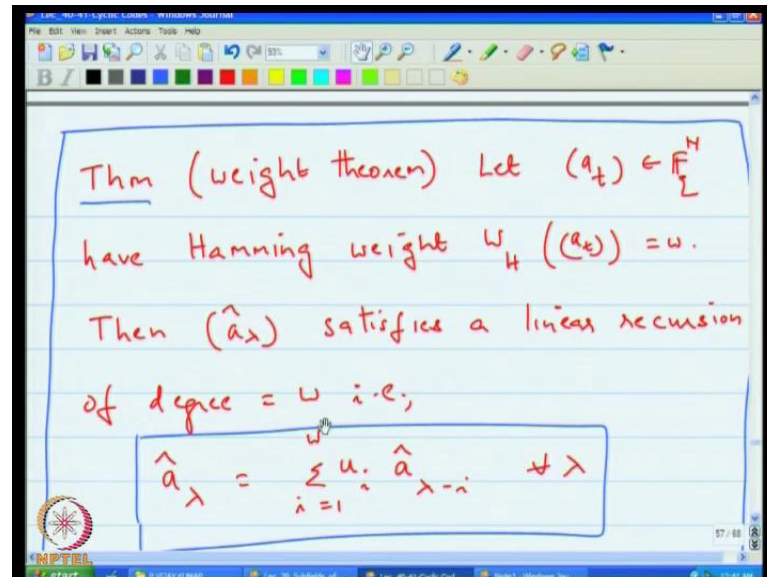 Lec_40-41-Cyclic Codes - Windows Journal
File Edit View Insert Actions Tools Help
93%
B I
Thm (weight theorem) Let (a_t) ∈ F_2^N
have Hamming weight W_H ((a_t)) = w.
Then (â_λ) satisfies a linear recursion
of degree = w i.e;
â_λ = Σ_{i=1}^{w} u_i â_{λ-i} ∀ λ
57 / 68
NPTEL
start
12:41 AM